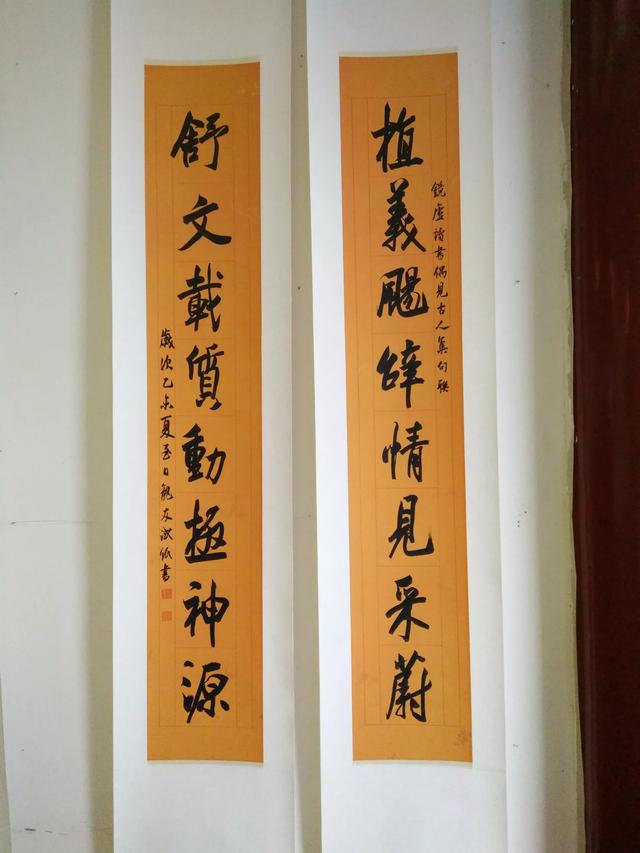 鏡虛讀書偶見古人集句聯
植義颺辝情見采蔚
舒文載質動極神源
歲次乙未夏至日友書